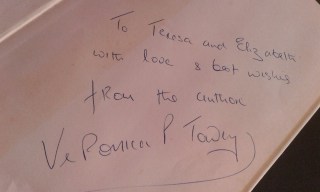 To Teresa and Elizabeth
with love & best wishes
from the author
Veronica P